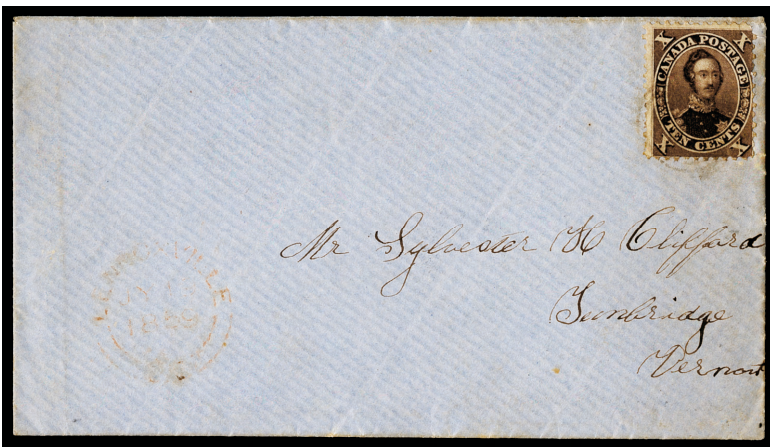 X X
CANADA POSTAGE
TEN CENTS
X X
Mr Sylvester H Clifford
Tunbridge
Vermont
1859